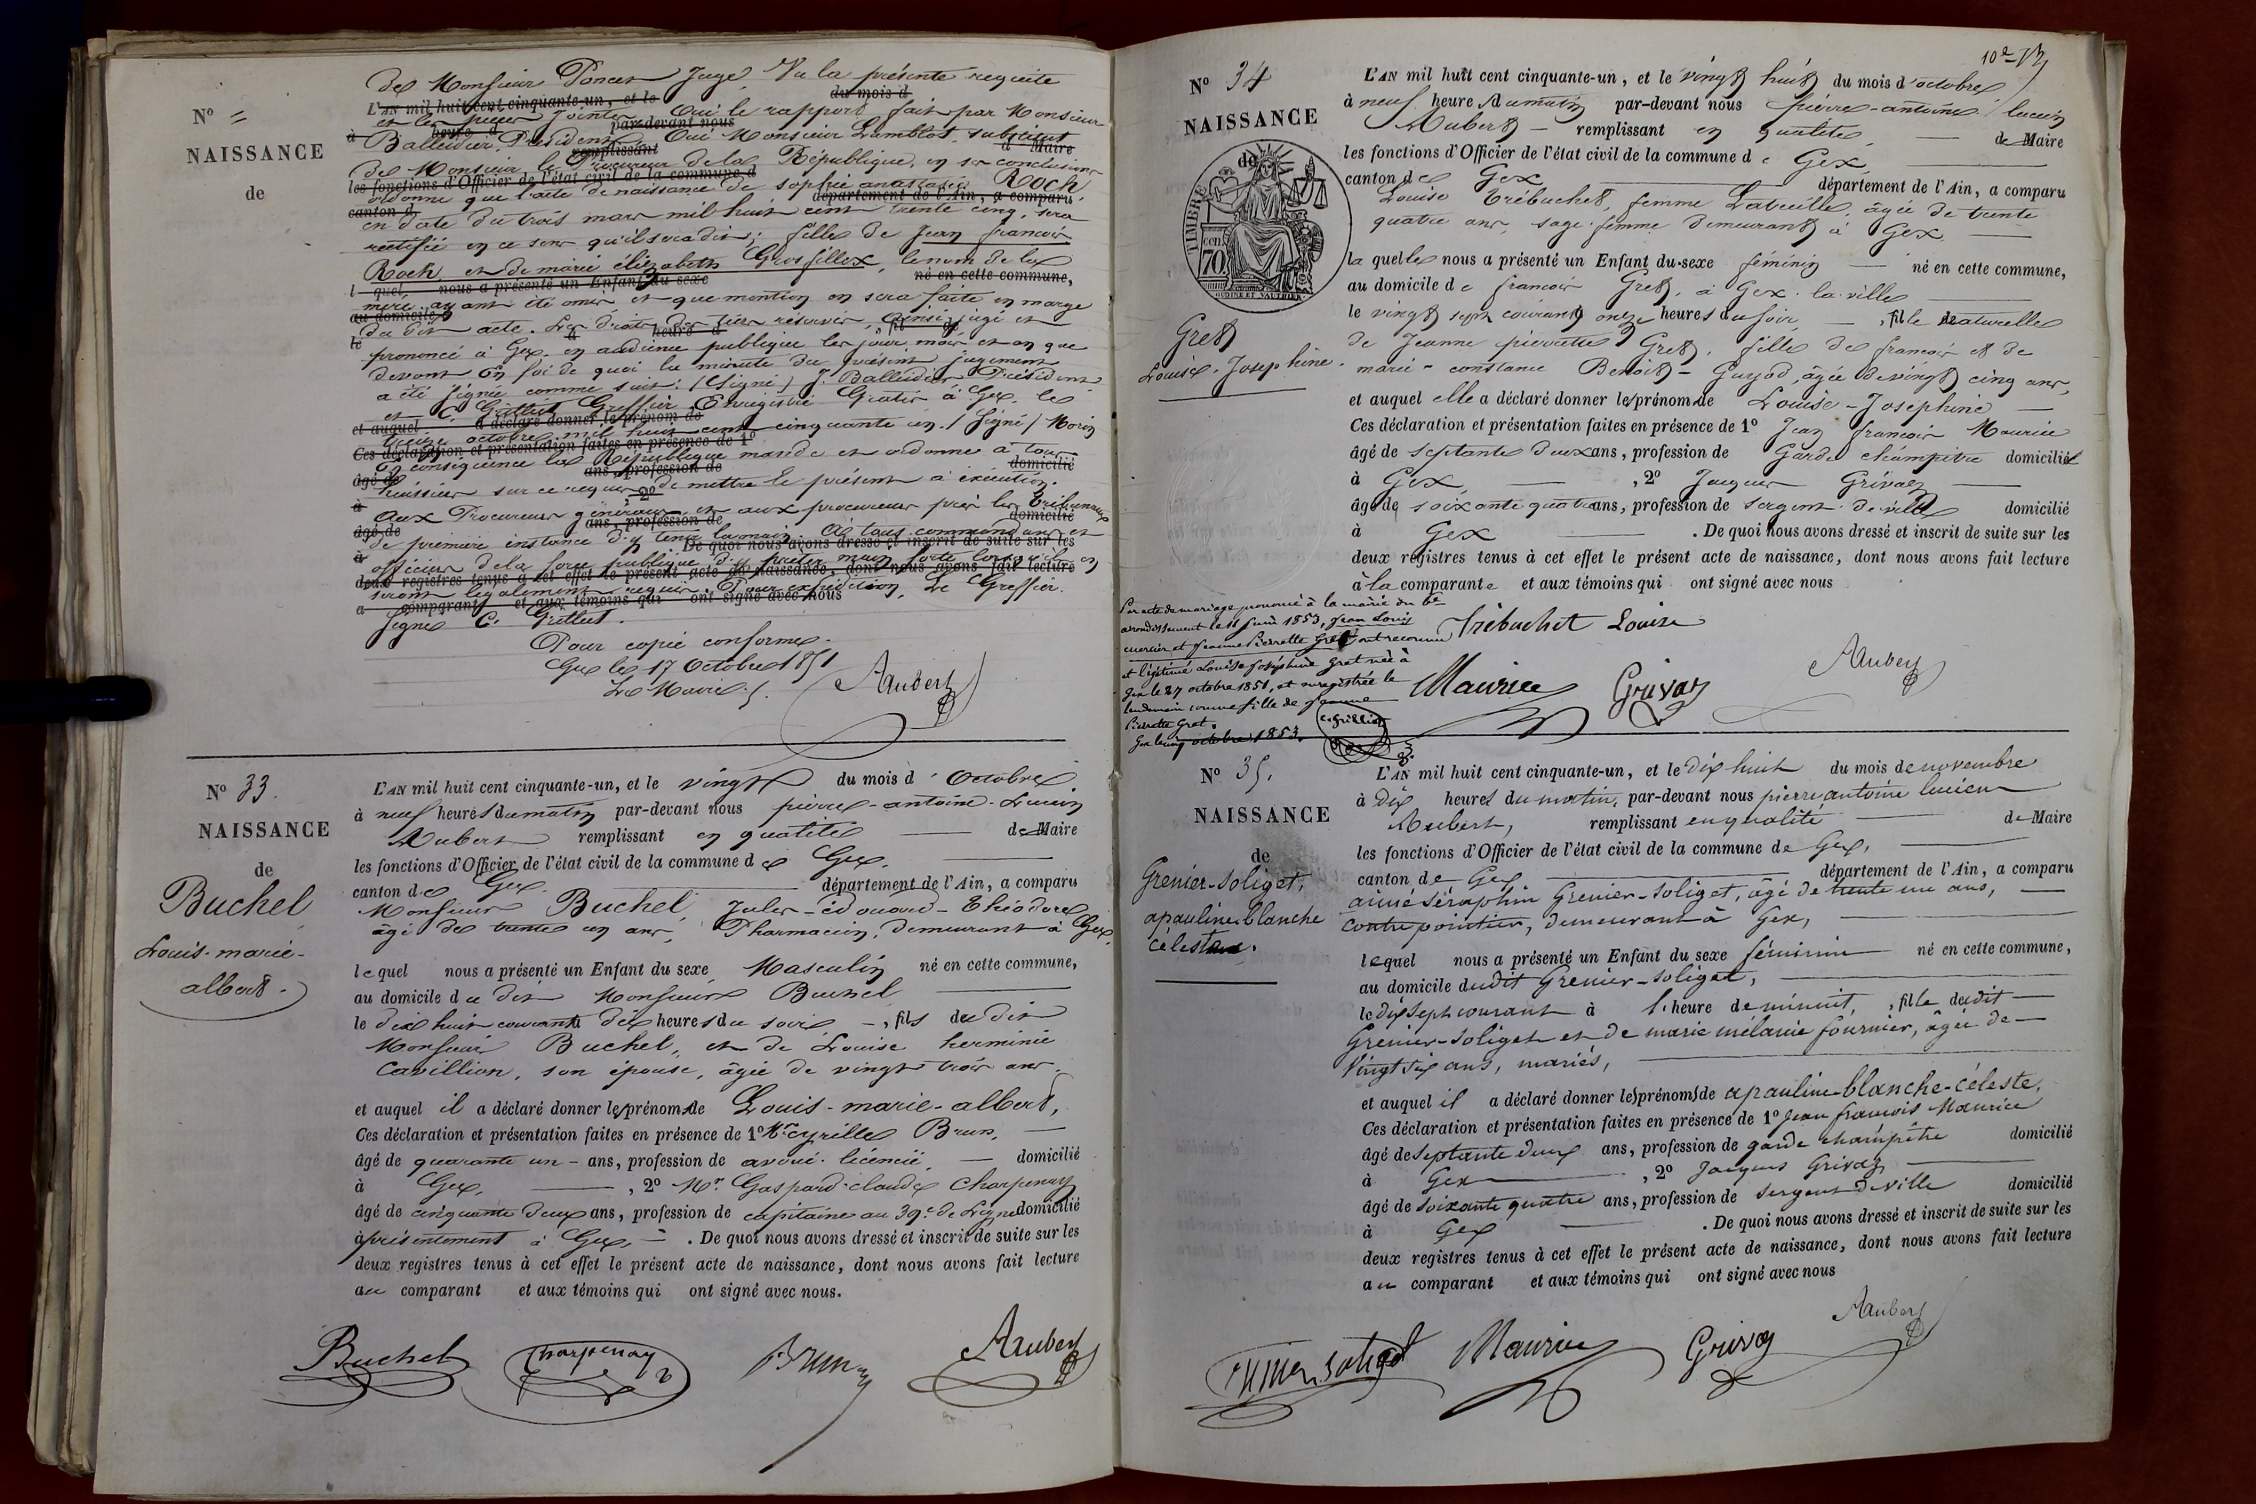 N° =
NAISSANCE
de
de Monsieur Poncet Juge, Vu la présente requête
L'AN mil huit cent cinquante-un, et le du mois d
et les pièces jointes Ouï le rapport fait par Monsieur
à heure d par-devant nous
Balleidier, Président, Ouï Monsieur Lamblot, substitut
remplissant d Maire
de Monsieur le Procureur de la République, en ses conclusions
les fonctions d'Officier de l'état civil de la commune d
ordonne que l'acte de naissance de sophie anastasie Roch
canton d département de l'Ain, a comparu
en date du trois mars mil huit cent trente cinq, sera
rectifié en ce sens qu'il sera dit; fille de Jean françois
Roch et de marie élizabeth Grosfillex, le nom de la
l quel nous a présenté un Enfant du sexe né en cette commune,
mère ayant été omis et que mention en sera faite en marge
au domicile d
du dit acte. Les droits des tiers réservés, ainsi jugé et
le à heure d , fil de
prononcé à Gex, en audience publique les jour, mois et an que
devant en foi de quoi la minute du présent jugement
a été signée comme suit: (Signé) J. Balleidier Président
et C. Grillet Greffier Enregistré Gratis à Gex, le
et auquel a déclaré donner le prénom de
treize octobre mil huit cent cinquante un. (Signé) Morin
Ces déclaration et présentation faites en présence de 1°
En conséquence la République mande et ordonne à tous
âgé de ans, profession de domicilié
huissiers sur ce requis de mettre le présent à exécution.
à , 2°
aux Procureurs généraux et aux procureurs près les Tribunaux
âgé de ans, profession de domicilié
de première instance d'y tenir la main. A tous commandants et
à De quoi nous avons dressé et inscrit de suite sur les
officiers de la force publique d'y prêter main forte lorsqu'ils en
deux registres tenus à cet effet le présent acte de naissance, dont nous avons fait lecture
seront légalement requis. Pour expédition, Le Greffier.
a comparant et aux témoins qui ont signé avec nous
signé C. Grillet.
Pour copie conforme.
Gex le 17 Octobre 1851
Le Maire.
Aubert
N° 33.
NAISSANCE
de
Buchel
Louis-marie-
albert.
L'AN mil huit cent cinquante-un, et le vingt du mois d'Octobre
à neuf heures du matin par-devant nous pierre-antoine-Lucien
Aubert remplissant en qualité de Maire
les fonctions d'Officier de l'état civil de la commune de Gex.
canton de Gex. département de l'Ain, a comparu
Monsieur Buchel, Jules-édouard-Théodore
âgé de trente un ans, Pharmacien, demeurant à Gex,
lequel nous a présenté un Enfant du sexe Masculin né en cette commune,
au domicile du dit Monsieur Buchel
le dix huit courant à dix heures du soir — , fils du dit
Monsieur Buchel, et de Louise herminie
Cavillion, son épouse, âgée de vingt trois ans.
et auquel il a déclaré donner les prénoms de Louis-marie-albert,
Ces déclaration et présentation faites en présence de 1° Mr cyrille Brun,
âgé de quarante un - ans, profession de avoué-licencié, — domicilié
à Gex, , 2° Mr Gaspard-claude Charpenay
âgé de cinquante deux ans, profession de capitaine au 39e de Ligne domicilié
à présentement à Gex, — . De quoi nous avons dressé et inscrit de suite sur les
deux registres tenus à cet effet le présent acte de naissance, dont nous avons fait lecture
au comparant et aux témoins qui ont signé avec nous.
Buchel Charpenay Brun Aubert
N° 34
NAISSANCE
de
TIMBRE
cen.
70
Gret
Louise-Josephine.
L'AN mil huit cent cinquante-un, et le vingt huit du mois d'octobre
à neuf heure du matin par-devant nous pierre-antoine lucien
Aubert — remplissant en qualité de Maire
les fonctions d'Officier de l'état civil de la commune de Gex
canton de Gex département de l'Ain, a comparu
Louise Trébuchet, femme Labeille, âgée de trente
quatre ans, sage-femme demeurant à Gex
laquelle nous a présenté un Enfant du sexe féminin — né en cette commune,
au domicile de francois Gret, à Gex-la-ville
le vingt sept courant à onze heures du soir, — , fille naturelle
de Jeanne pierrette Gret, fille de francois et de
marie-constance Benoit-Gurjod, âgée de vingt cinq ans,
et auquel elle a déclaré donner les prénoms de Louise-Josephine —
Ces déclaration et présentation faites en présence de 1° Jean francois Maurice
âgé de septante deux ans, profession de Garde champêtre domicilié
à Gex — , 2° Jacques Grivaz
âgé de soixante quatre ans, profession de sergent-de-ville domicilié
à Gex . De quoi nous avons dressé et inscrit de suite sur les
deux registres tenus à cet effet le présent acte de naissance, dont nous avons fait lecture
à la comparante et aux témoins qui ont signé avec nous
Par acte de mariage prononcé à la mairie du 6e
arrondissement le 11 juin 1853, Jean Louis
mercier et Jeanne Pierrette Gret ont reconnu
et légitimé Louise Joséphine Gret née à
Gex le 27 octobre 1851, et enregistrée le
lendemain comme fille de Jeanne
Pierrette Gret.
Gex le cinq octobre 1853.
Trébuchet Louise
Maurice Grivaz Aubert
N° 35.
NAISSANCE
de
Grenier-Soliget,
apauline-blanche
céleste.
L'AN mil huit cent cinquante-un, et le dix huit du mois de novembre
à dix heures du matin, par-devant nous pierre antoine lucien
Aubert, remplissant en qualité de Maire
les fonctions d'Officier de l'état civil de la commune de Gex,
canton de Gex département de l'Ain, a comparu
aimé séraphin Grenier-Soliget, âgé de trente un ans,
contrepointier, demeurant à Gex,
lequel nous a présenté un Enfant du sexe féminin né en cette commune,
au domicile dudit Grenier-Soliget,
le dix sept courant à l'heure de minuit, , fille dudit
Grenier-Soliget et de marie mélanie fournier, âgée de
vingt six ans, mariés,
et auquel il a déclaré donner les prénoms de apauline-blanche-céleste,
Ces déclaration et présentation faites en présence de 1° Jean francois Maurice
âgé de septante deux ans, profession de garde champêtre domicilié
à Gex , 2° Jacques Grivaz
âgé de soixante quatre ans, profession de sergent de ville domicilié
à Gex . De quoi nous avons dressé et inscrit de suite sur les
deux registres tenus à cet effet le présent acte de naissance, dont nous avons fait lecture
au comparant et aux témoins qui ont signé avec nous
Grenier Soliget Maurice Grivaz Aubert